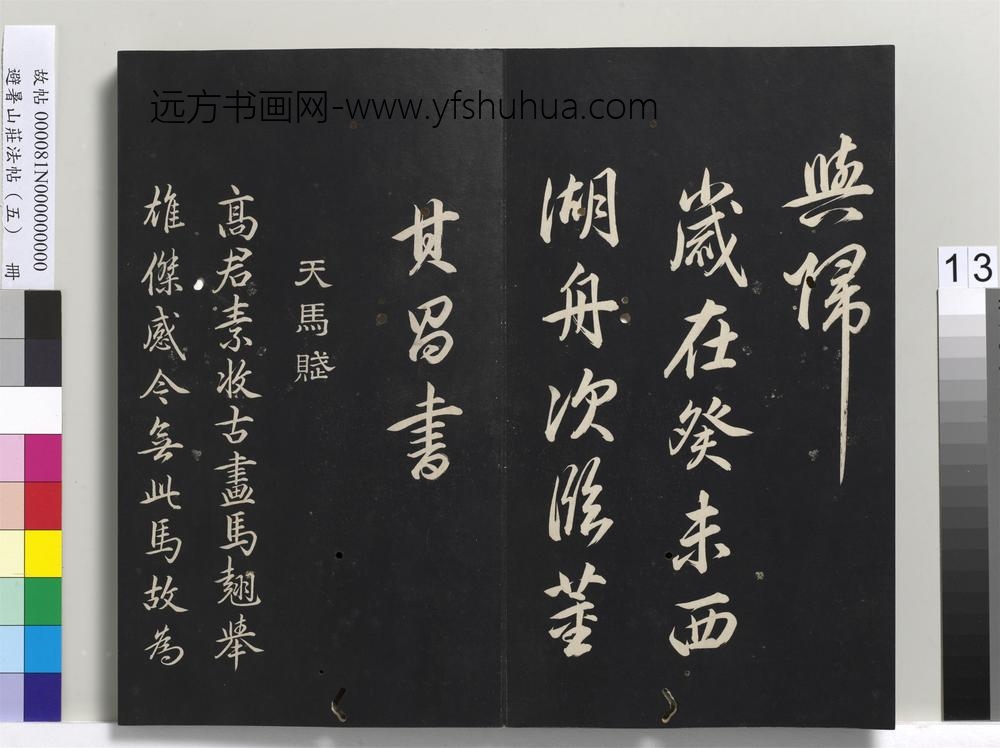 與歸
歲在癸未西
湖舟次臨董
其昌書
天馬賦
高君素收古畫馬翹舉
雄傑感今無此馬故為
远方书画网-www.yfshuhua.com
故帖 000081N000000000
避暑山莊法帖(五) 冊
13